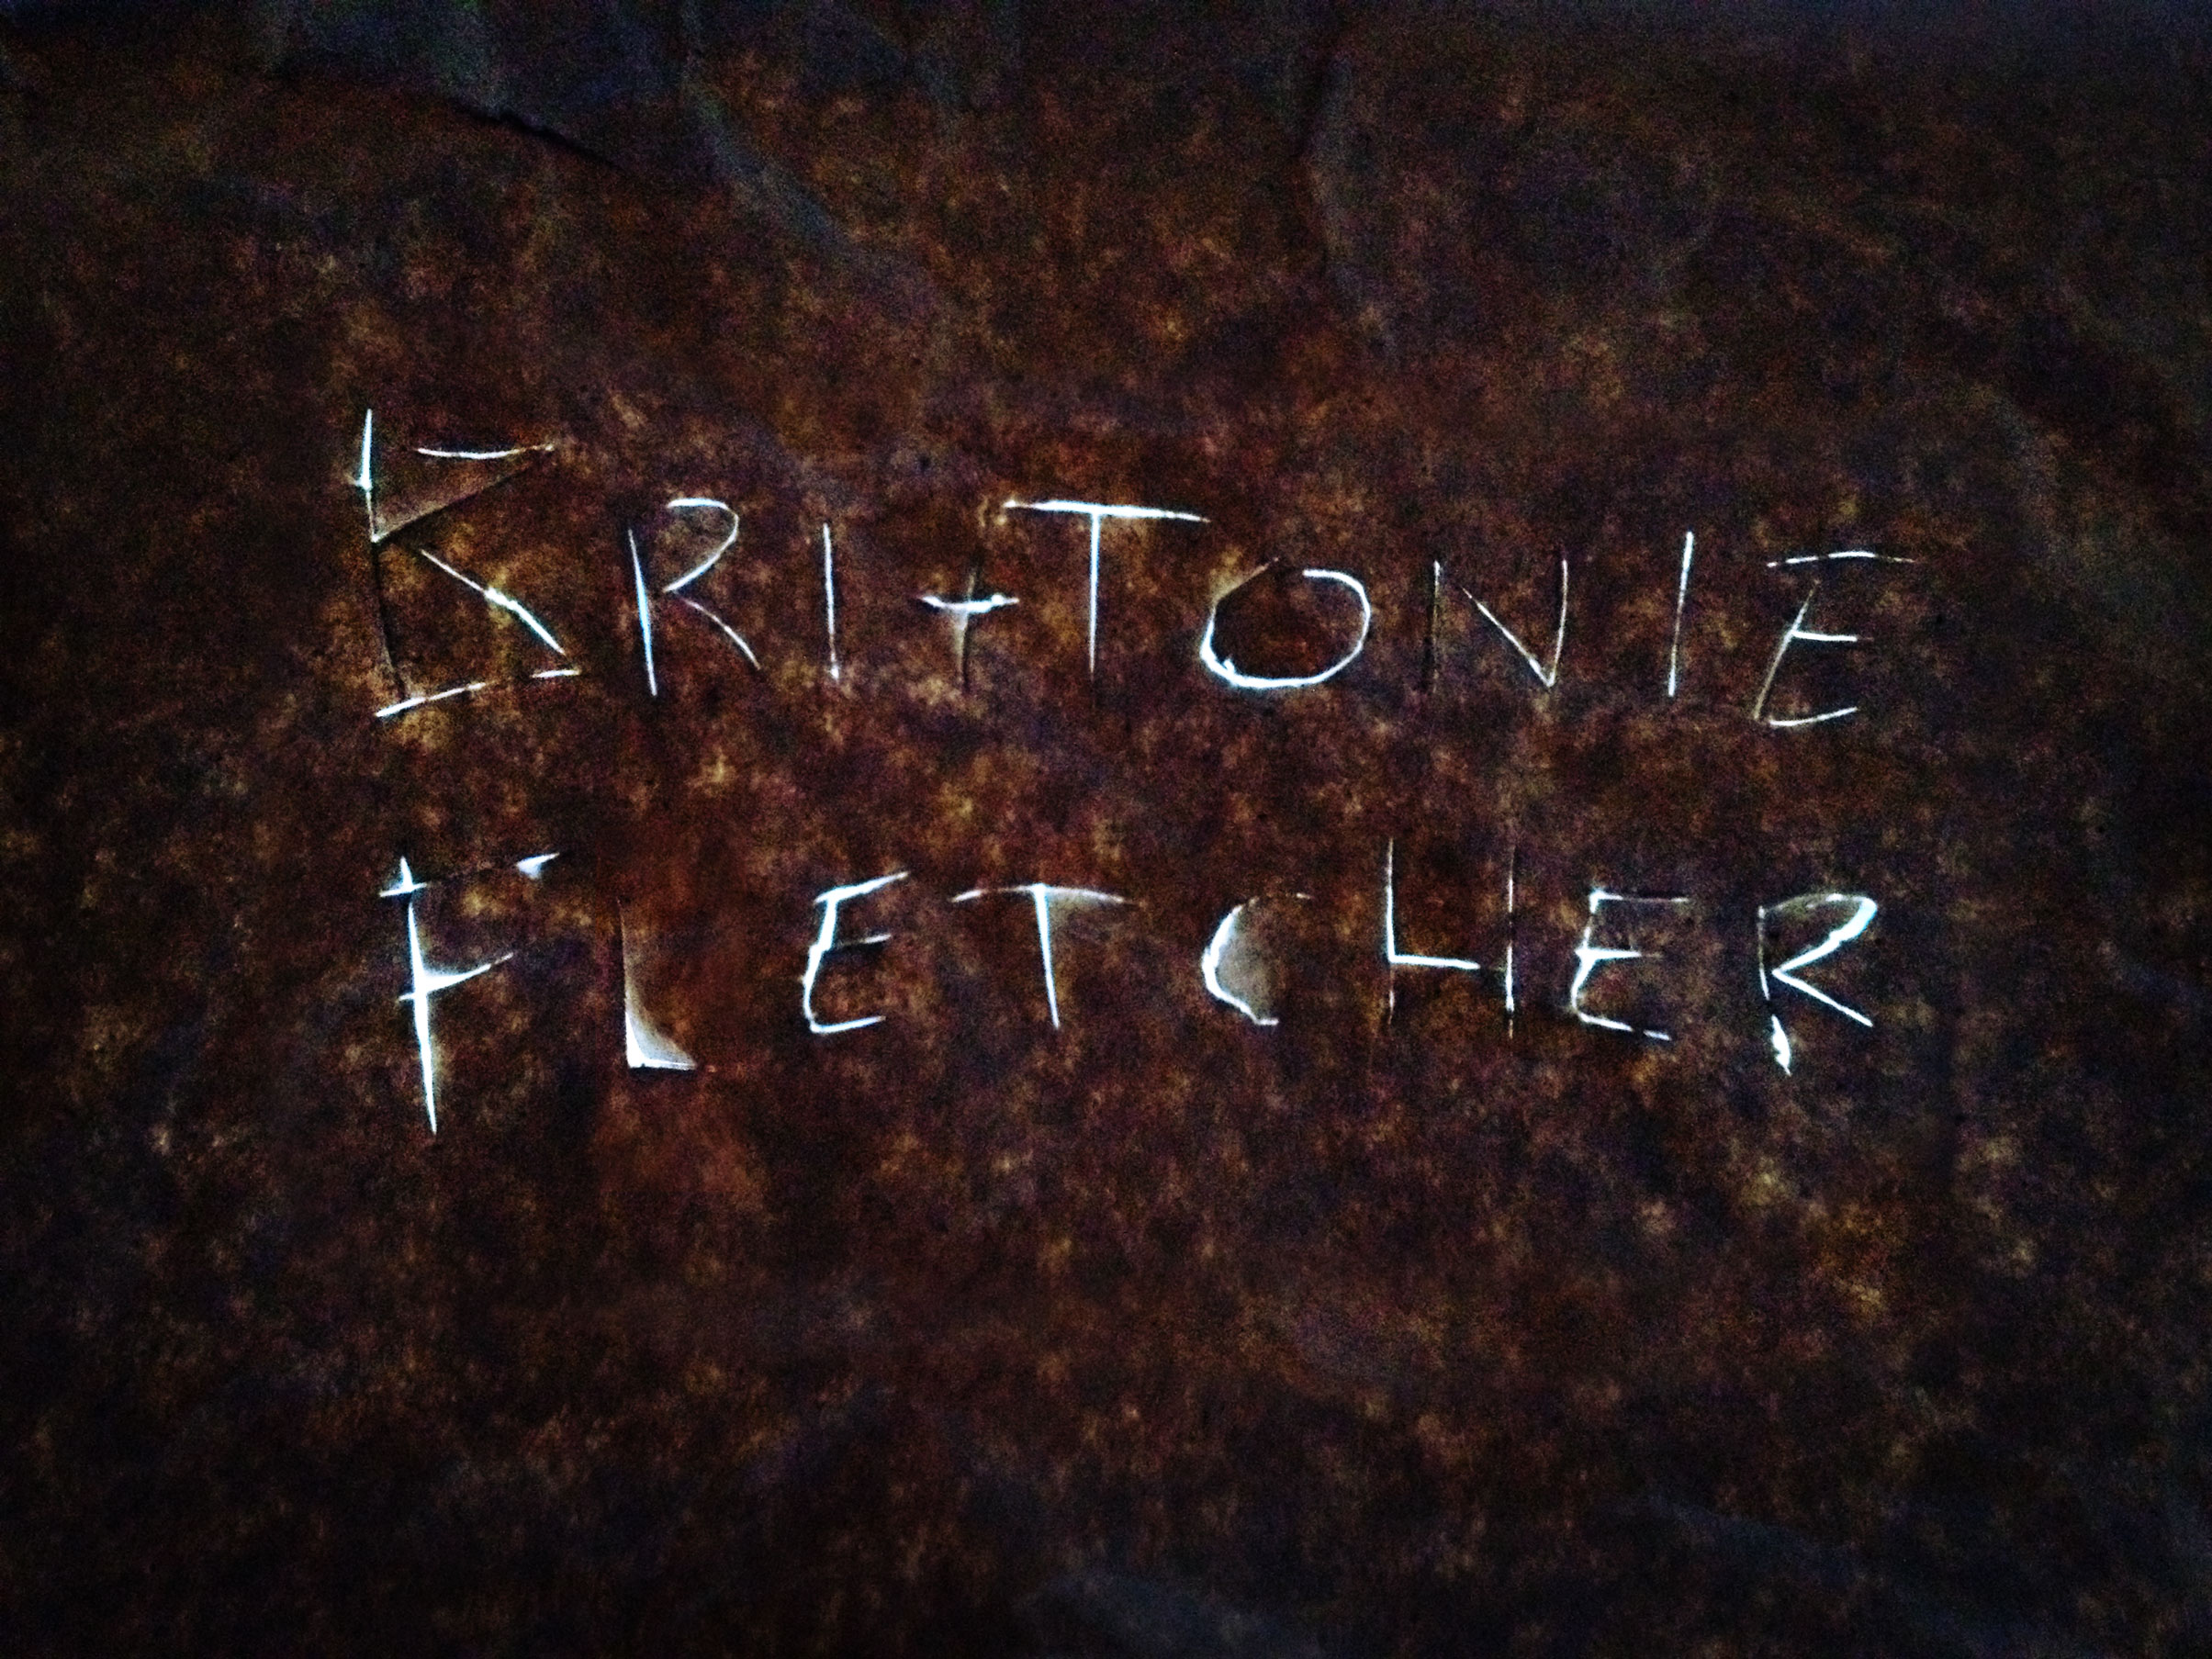 KRI+TONIE
FLETCHER